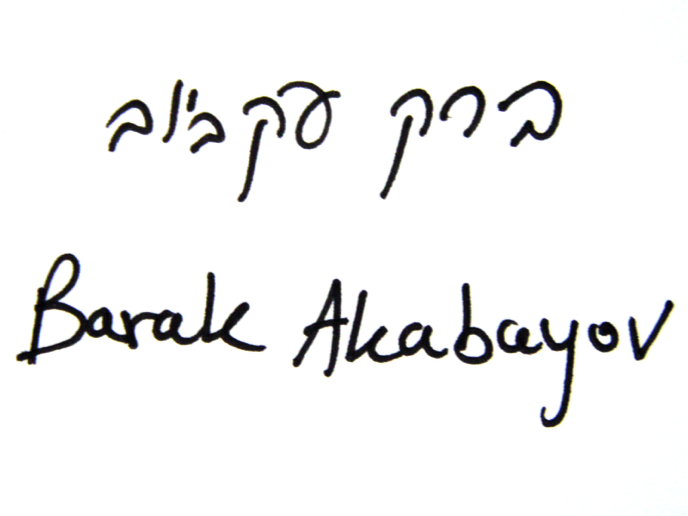 ברק עקביוב
Barak Akabayov